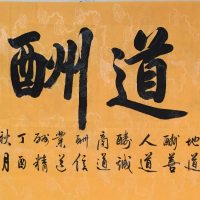 道酬
地道
酬善
人道
酬誠
商道
酬信
業道
酬精
丁酉
秋月